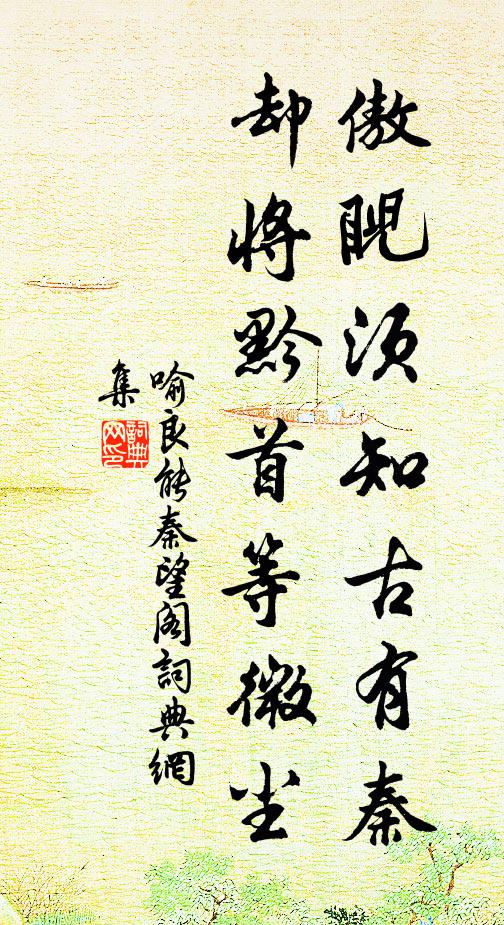 傲睨須知古有秦
却將黔首等微尘
喻良能秦望阁詞典網
集
詞典網印